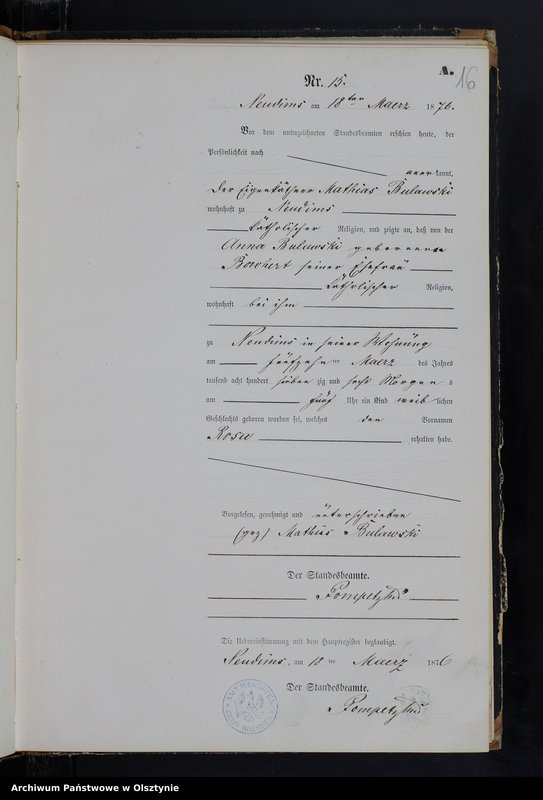 A.
16
Nr. 15.
Neudims am 18ten Maerz 1876.
Vor dem unterzeichneten Standesbeamten erschien heute, der
Persönlichkeit nach
kannt,
Der Eigenkäthner Mathias Bulawski
wohnhaft zu Neudims
katholischer Religion, und zeigte an, daß von der
Anna Bulawski geborenen
seiner Ehefrau
katholischer Religion,
wohnhaft bei ihm
zu Neudims in seiner Wohnung
am fünfzehnten Maerz des Jahres
tausend acht hundert siebenzig und sechs Morgens
um fünf Uhr ein Kind weiblichen
Geschlechts geboren worden sei, welches den Vornamen
Rosa erhalten habe.
Vorgelesen, genehmigt und unterschrieben
(gez) Mathias Bulawski
Der Standesbeamte.
Die Uebereinstimmung mit dem Hauptregister beglaubigt.
Neudims am 18ten Maerz 1876
Der Standesbeamte.
Archiwum Państwowe w Olsztynie